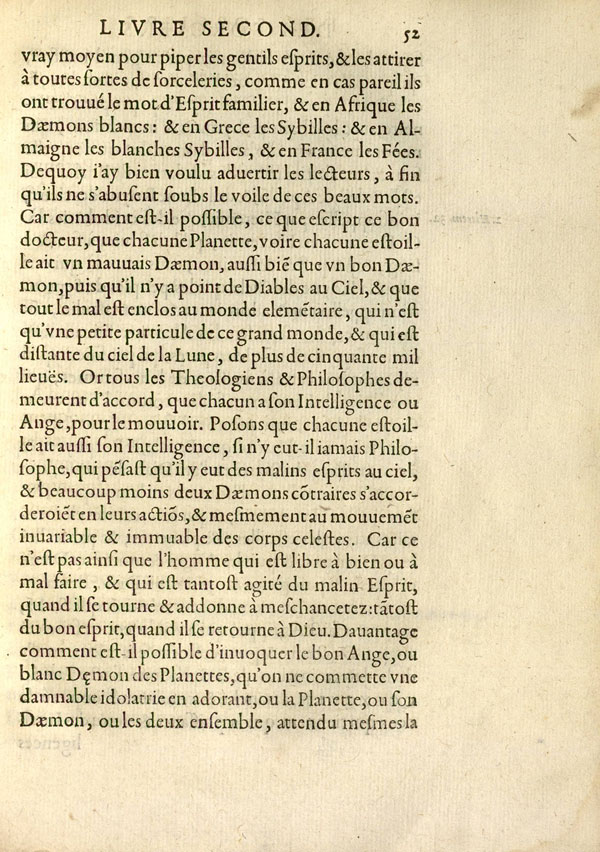 LIVRE SECOND. 52
vray moyen pour piper les gentils eſprits, & les attirer
à toutes ſortes de ſorceleries, comme en cas pareil ils
ont trouué le mot d'Eſprit familier, & en Afrique les
Dæmons blancs: & en Grece les Sybilles: & en Al-
maigne les blanches Sybilles, & en France les Fées.
Dequoy i'ay bien voulu aduertir les lecteurs, à fin
qu'ils ne s'abuſent ſoubs le voile de ces beaux mots.
Car comment eſt-il poſſible, ce que eſcript ce bon
docteur, que chacune Planette, voire chacune eſtoil-
le ait vn mauuais Dæmon, auſſi biē que vn bon Dæ-
mon, puis qu'il n'y a point de Diables au Ciel, & que
tout le mal eſt enclos au monde elemētaire, qui n'eſt
qu'vne petite particule de ce grand monde, & qui eſt
diſtante du ciel de la Lune, de plus de cinquante mil
lieuës. Or tous les Theologiens & Philoſophes de-
meurent d'accord, que chacun a ſon Intelligence ou
Ange, pour le mouuoir. Poſons que chacune eſtoil-
le ait auſſi ſon Intelligence, ſi n'y eut-il iamais Philo-
ſophe, qui pēſaſt qu'il y eut des malins eſprits au ciel,
& beaucoup moins deux Dæmons cōtraires s'accor-
deroiēt en leurs actiōs, & meſmement au mouuemēt
inuariable & immuable des corps celeſtes. Car ce
n'eſt pas ainſi que l'homme qui eſt libre à bien ou à
mal faire, & qui eſt tantoſt agité du malin Eſprit,
quand il ſe tourne & addonne à meſchancetez: tātoſt
du bon eſprit, quand il ſe retourne à Dieu. Dauantage
comment eſt-il poſſible d'inuoquer le bon Ange, ou
blanc Dęmon des Planettes, qu'on ne commette vne
damnable idolatrie en adorant, ou la Planette, ou ſon
Dæmon, ou les deux enſemble, attendu meſmes la